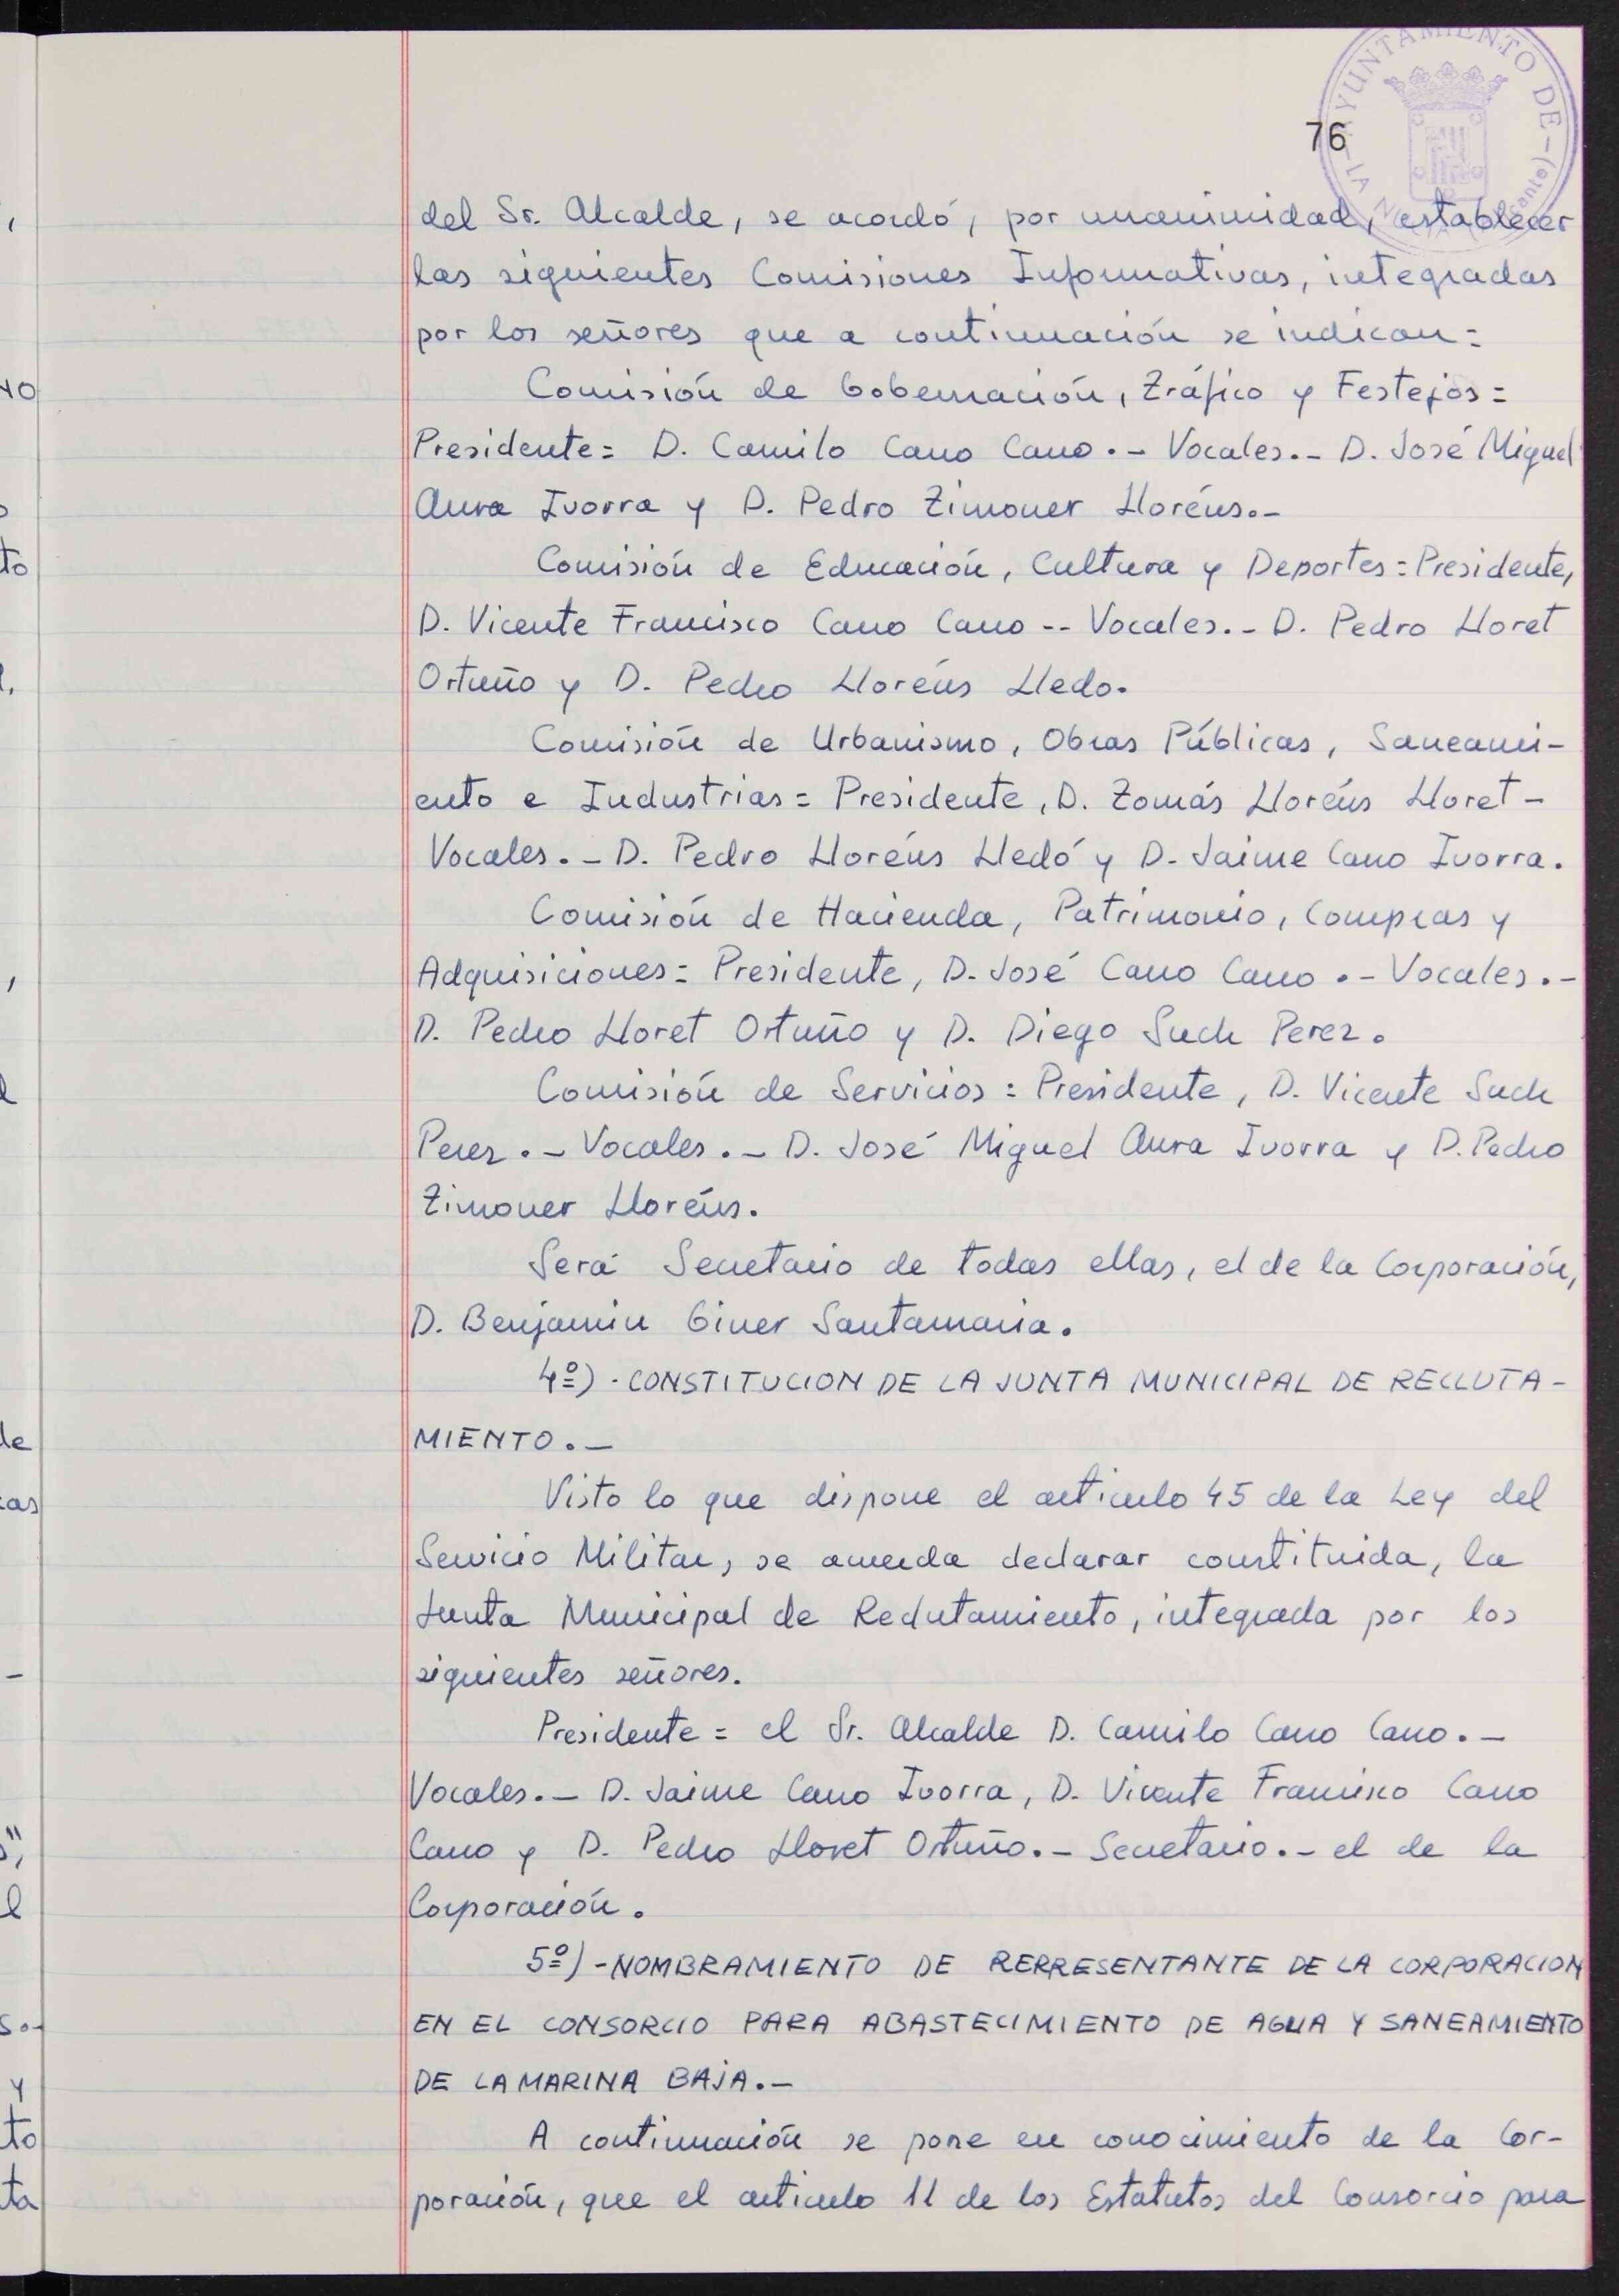 AYUNTAMIENTO DE
LA N
ante)
76
del Sr. Alcalde, se acordó, por unanimidad, establecer
las siguientes Comisiones Informativas, integradas
por los señores que a continuación se indican =
Comisión de Gobernación, Tráfico y Festejos =
Presidente = D. Camilo Cano Cano.- Vocales.- D. José Miguel
Aura Ivorra y D. Pedro Timoner Lloréns.-
Comisión de Educación, Cultura y Deportes = Presidente,
D. Vicente Francisco Cano Cano -- Vocales.- D. Pedro Lloret
Ortuño y D. Pedro Lloréns Lledo.
Comisión de Urbanismo, Obras Públicas, Saneami-
ento e Industrias = Presidente, D. Tomás Lloréns Lloret -
Vocales.- D. Pedro Lloréns Lledó y D. Jaime Cano Ivorra.
Comisión de Hacienda, Patrimonio, Compras y
Adquisiciones = Presidente, D. José Cano Cano.- Vocales.-
D. Pedro Lloret Ortuño y D. Diego Such Perez.
Comisión de Servicios = Presidente, D. Vicente Such
Perez.- Vocales.- D. José Miguel Aura Ivorra y D. Pedro
Timoner Lloréns.
Será Secretario de todas ellas, el de la Corporación,
D. Benjamin Giner Santamaria.
4º) - CONSTITUCION DE LA JUNTA MUNICIPAL DE RECLUTA-
MIENTO.-
Visto lo que dispone el articulo 45 de la Ley del
Servicio Militar, se acuerda declarar constituida, la
Junta Municipal de Reclutamiento, integrada por los
siguientes señores.
Presidente = el Sr. Alcalde D. Camilo Cano Cano.-
Vocales.- D. Jaime Cano Ivorra, D. Vicente Francisco Cano
Cano y D. Pedro Lloret Ortuño.- Secretario.- el de la
Corporación.
5º) - NOMBRAMIENTO DE RERRESENTANTE DE LA CORPORACION
EN EL CONSORCIO PARA ABASTECIMIENTO DE AGUA Y SANEAMIENTO
DE LA MARINA BAJA.-
A continuación se pone en conocimiento de la Cor-
poración, que el articulo 11 de los Estatutos del Consorcio para